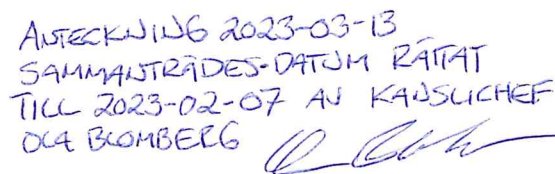 ANTECKNING 2023-03-13
SAMMANTRÄDES-DATUM RÄTTAT
TILL 2023-02-07 AV KANSLICHEF
OLA BLOMBERG